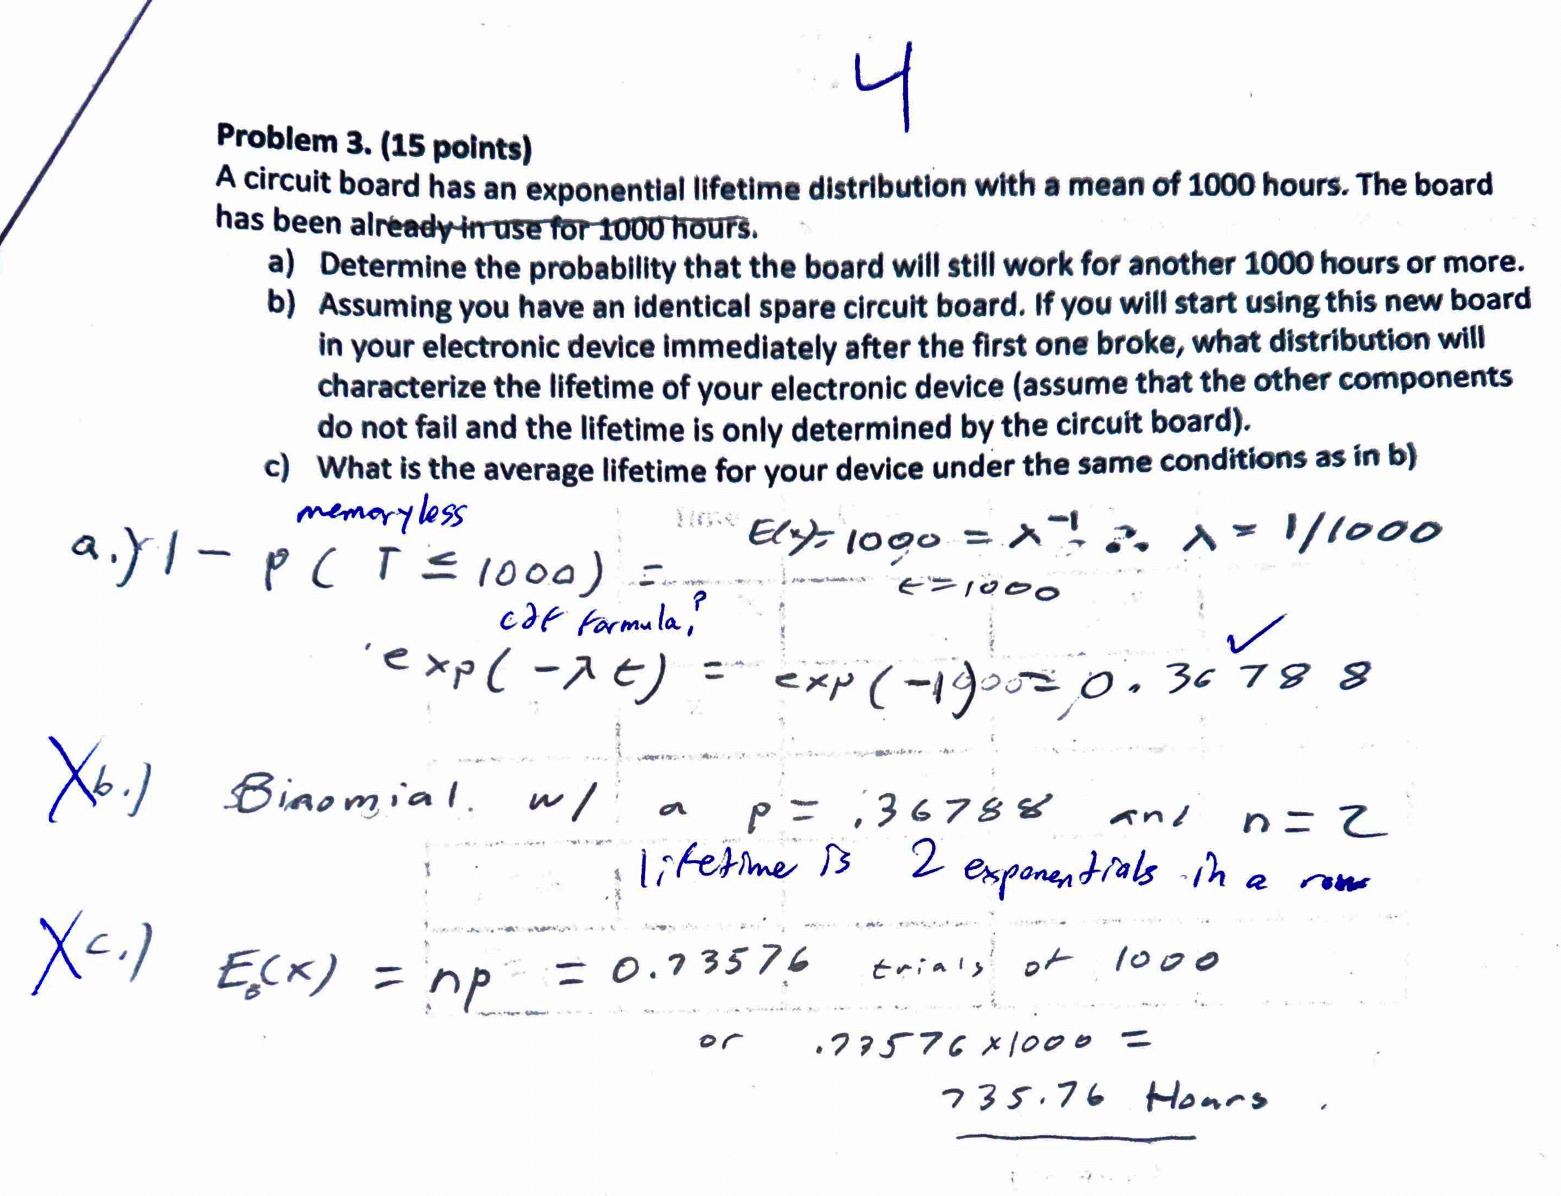 4
Problem 3. (15 points)
A circuit board has an exponential lifetime distribution with a mean of 1000 hours. The board
has been already in use for 1000 hours.
a) Determine the probability that the board will still work for another 1000 hours or more.
b) Assuming you have an identical spare circuit board. If you will start using this new board
in your electronic device immediately after the first one broke, what distribution will
characterize the lifetime of your electronic device (assume that the other components
do not fail and the lifetime is only determined by the circuit board).
c) What is the average lifetime for your device under the same conditions as in b)
memoryless
E(x) = 1000 = λ⁻¹ ∴ λ = 1/1000
a.) 1 - P(T ≤ 1000) =
t = 1000
cdf formula?
exp(-λt) = exp(-1) = 0.36788 ✓
X b.) Binomial. w/ a p = .36788 and n = 2
lifetime is 2 exponentials in a row
X c.) E_B(x) = np = 0.73576 trials of 1000
or .73576 x 1000 =
735.76 Hours.